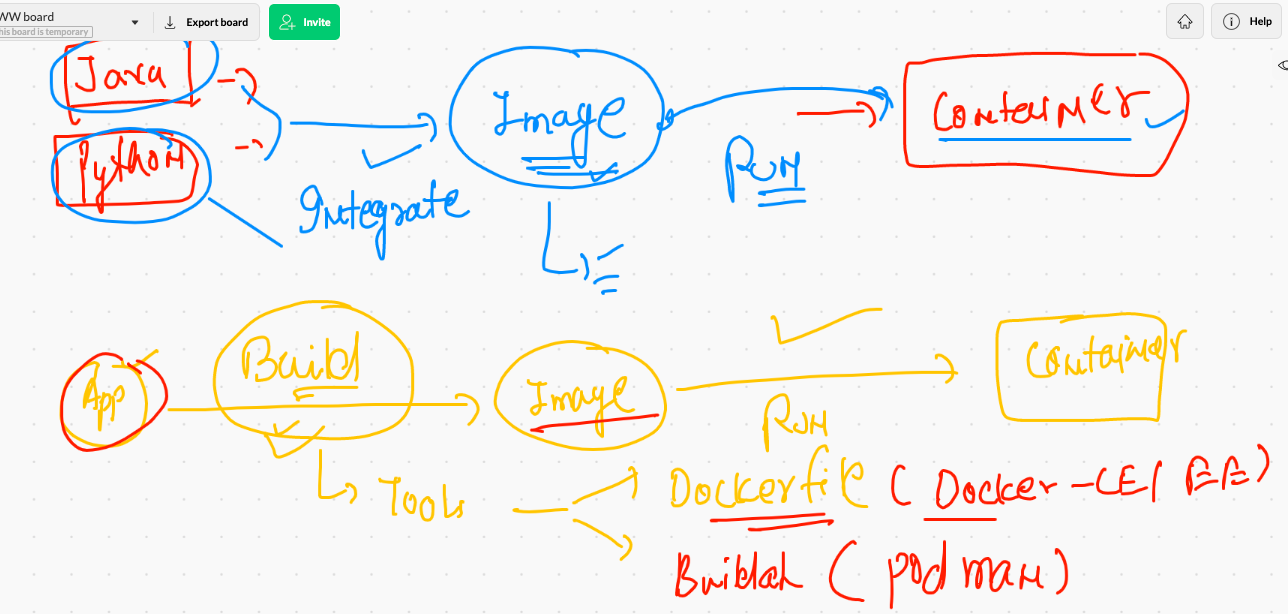 WW board
his board is temporary
Export board
Invite
Help
Java
Python
Integrate
Image
Run
Container
App
Build
Image
Run
Container
Tools
Dockerfile (Docker-CE/EE)
Buildah (podman)